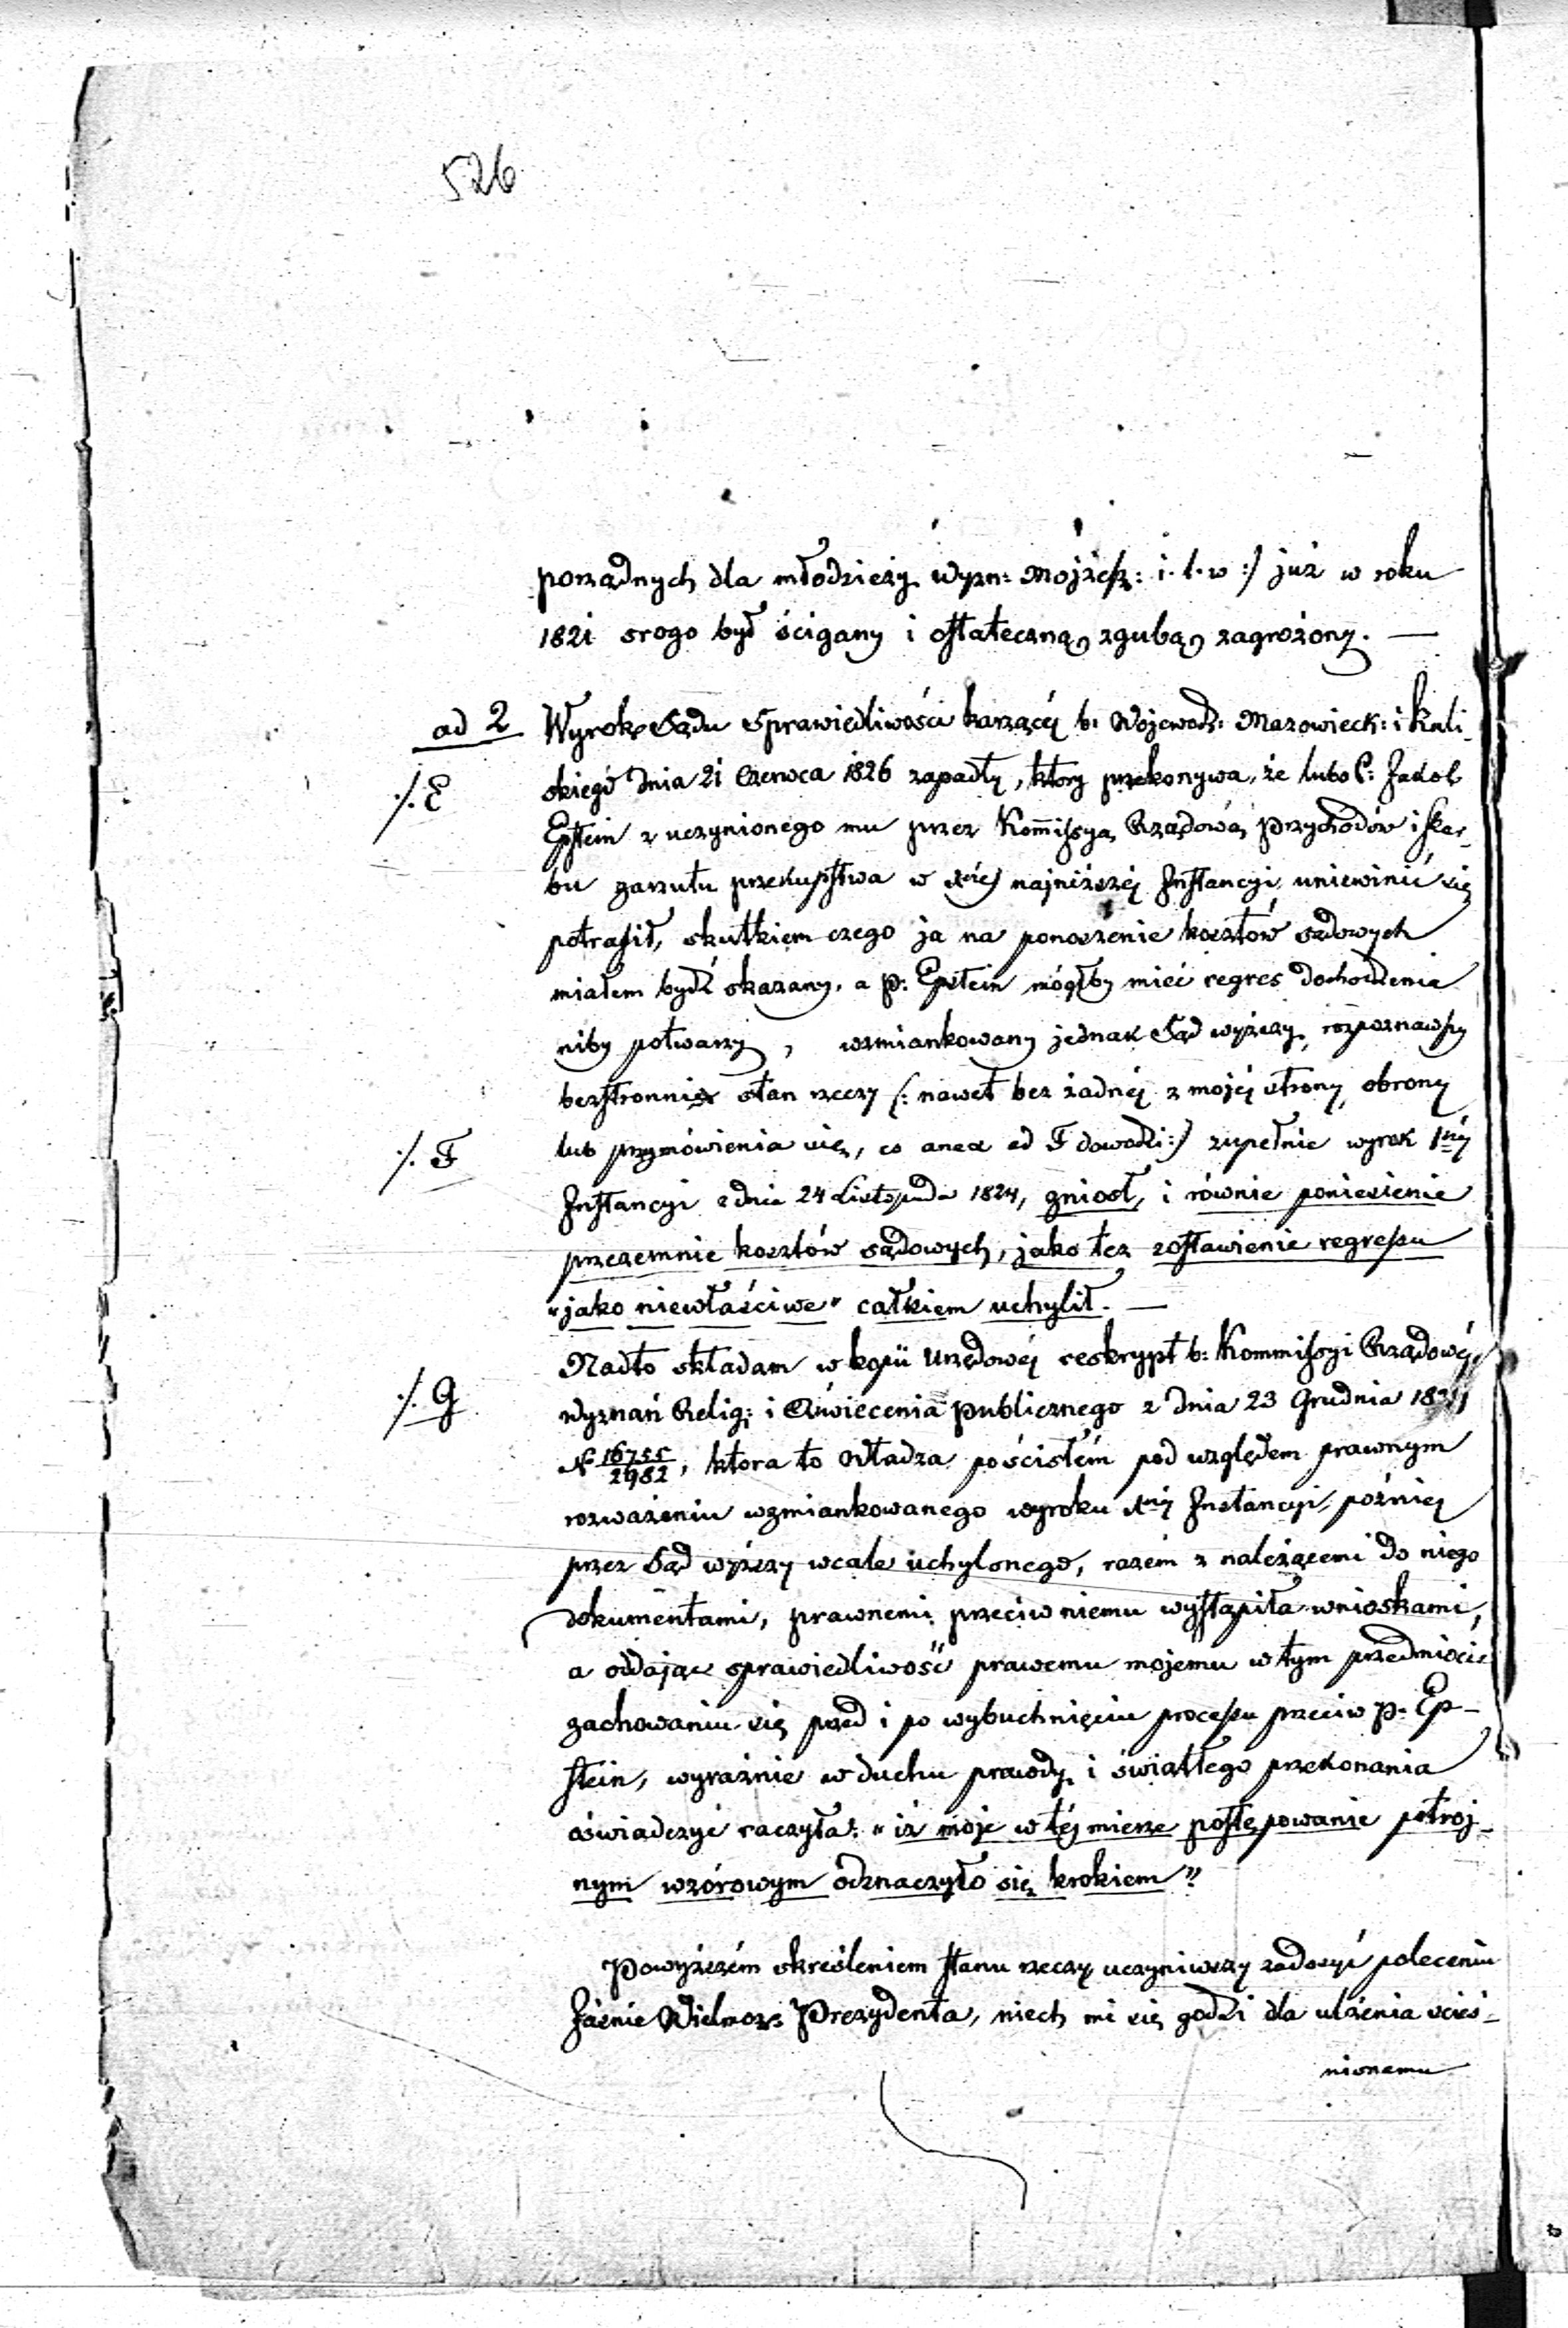 526
porządnych dla młodzieży wyzn: Mojżesz: i. t. w :/ już w roku
1821 srogo był ścigany i ostateczną zgubą zagrożony. —
ad 2 Wyrok Sądu Sprawiedliwości karzącéj b: Wojewodz: Mazowieck: i Kali-
skiego dnia 21 Czerwca 1826 zapadły, który przekonywa, że lubo P: Jakob
./. E
Epstein z uczynionego mu przez Kommissyą Rządową Przychodów i Skar-
bu zarzutu przekupstwa w najniższéj Instancyi uniewinić się
potrafił, skutkiem czego ja na ponoszenie kosztów sądowych
miałem bydź skazany, a P: Epstein mógłby mieć regres dochodzenia
niby potwarzy, wzmiankowany jednak Sąd wyższy, rozpoznawszy
bezstronnie stan rzeczy /: nawet bez żadnéj z mojéj strony obrony
./. F lub przymówienia się, co anex ad F dowodzi :/ zupełnie wyrok 1néj
Instancyi z dnia 24 Listopada 1824, zniósł, i równie poniesienie
przezemnie kosztów sądowych, jako też zostawienie regressu
"jako niewłaściwe" całkiem uchylił. —
Nadto składam w kopii urzędowéj reskrypt b: Kommissyi Rządowéj
./. G wyznań Relig: i Oświecenia publicznego z dnia 23 Grudnia
N 16755/2982, ktora to Władza po ścisłém pod względem prawnym
rozważeniu wzmiankowanego wyroku Instancyi, poźniéj
przez Sąd wyższy wcale uchylonego, razem z należącemi do niego
dokumentami, prawnemi przeciw niemu wystąpiła wnioskami,
a oddając sprawiedliwość prawemu mojemu w tym przedmiocie
zachowaniu się przed i po wybuchnięciu processu przeciw P: Ep-
stein, wyraźnie w duchu prawdy i światłego przekonania
oświadczyć raczyła: "iż moje w téj mierze postępowanie potrój-
nym wzórowym odznaczyło się krokiem"
Powyższém określeniem stanu rzeczy uczyniwszy zadosyć poleceniu
Jaśnie Wielmoż: Prezydenta, niech mi się godzi dla ulżenia uciś-
nionemu